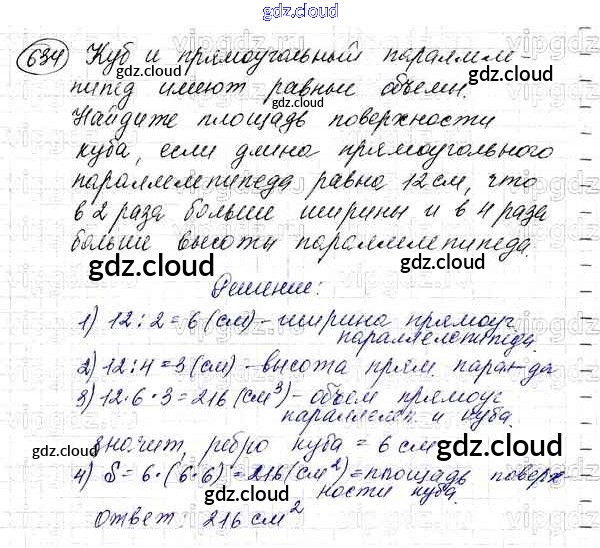 gdz.cloud
634 Куб и прямоугольный параллеле-
gdz.cloud gdz.cloud
пипед имеют равные объемы.
Найдите площадь поверхности
куба, если длина прямоугольного
параллелепипеда равна 12 см, что
в 2 раза больше ширины и в 4 раза
больше высоты параллелепипеда.
gdz.cloud gdz.cloud
Решение:
1) 12 : 2 = 6 (см) - ширина прямоуг.
параллелепипеда.
2) 12 : 4 = 3 (см) - высота прям. парал-да
3) 12 · 6 · 3 = 216 (см³) - объем прямоуг
параллелеп и куба.
значит, ребро куба = 6 см
gdz.cloud gdz.cloud
4) S = 6 · (6 · 6) = 216 (см²) = площадь поверх-
ности куба.
ответ: 216 см²
gdz.cloud